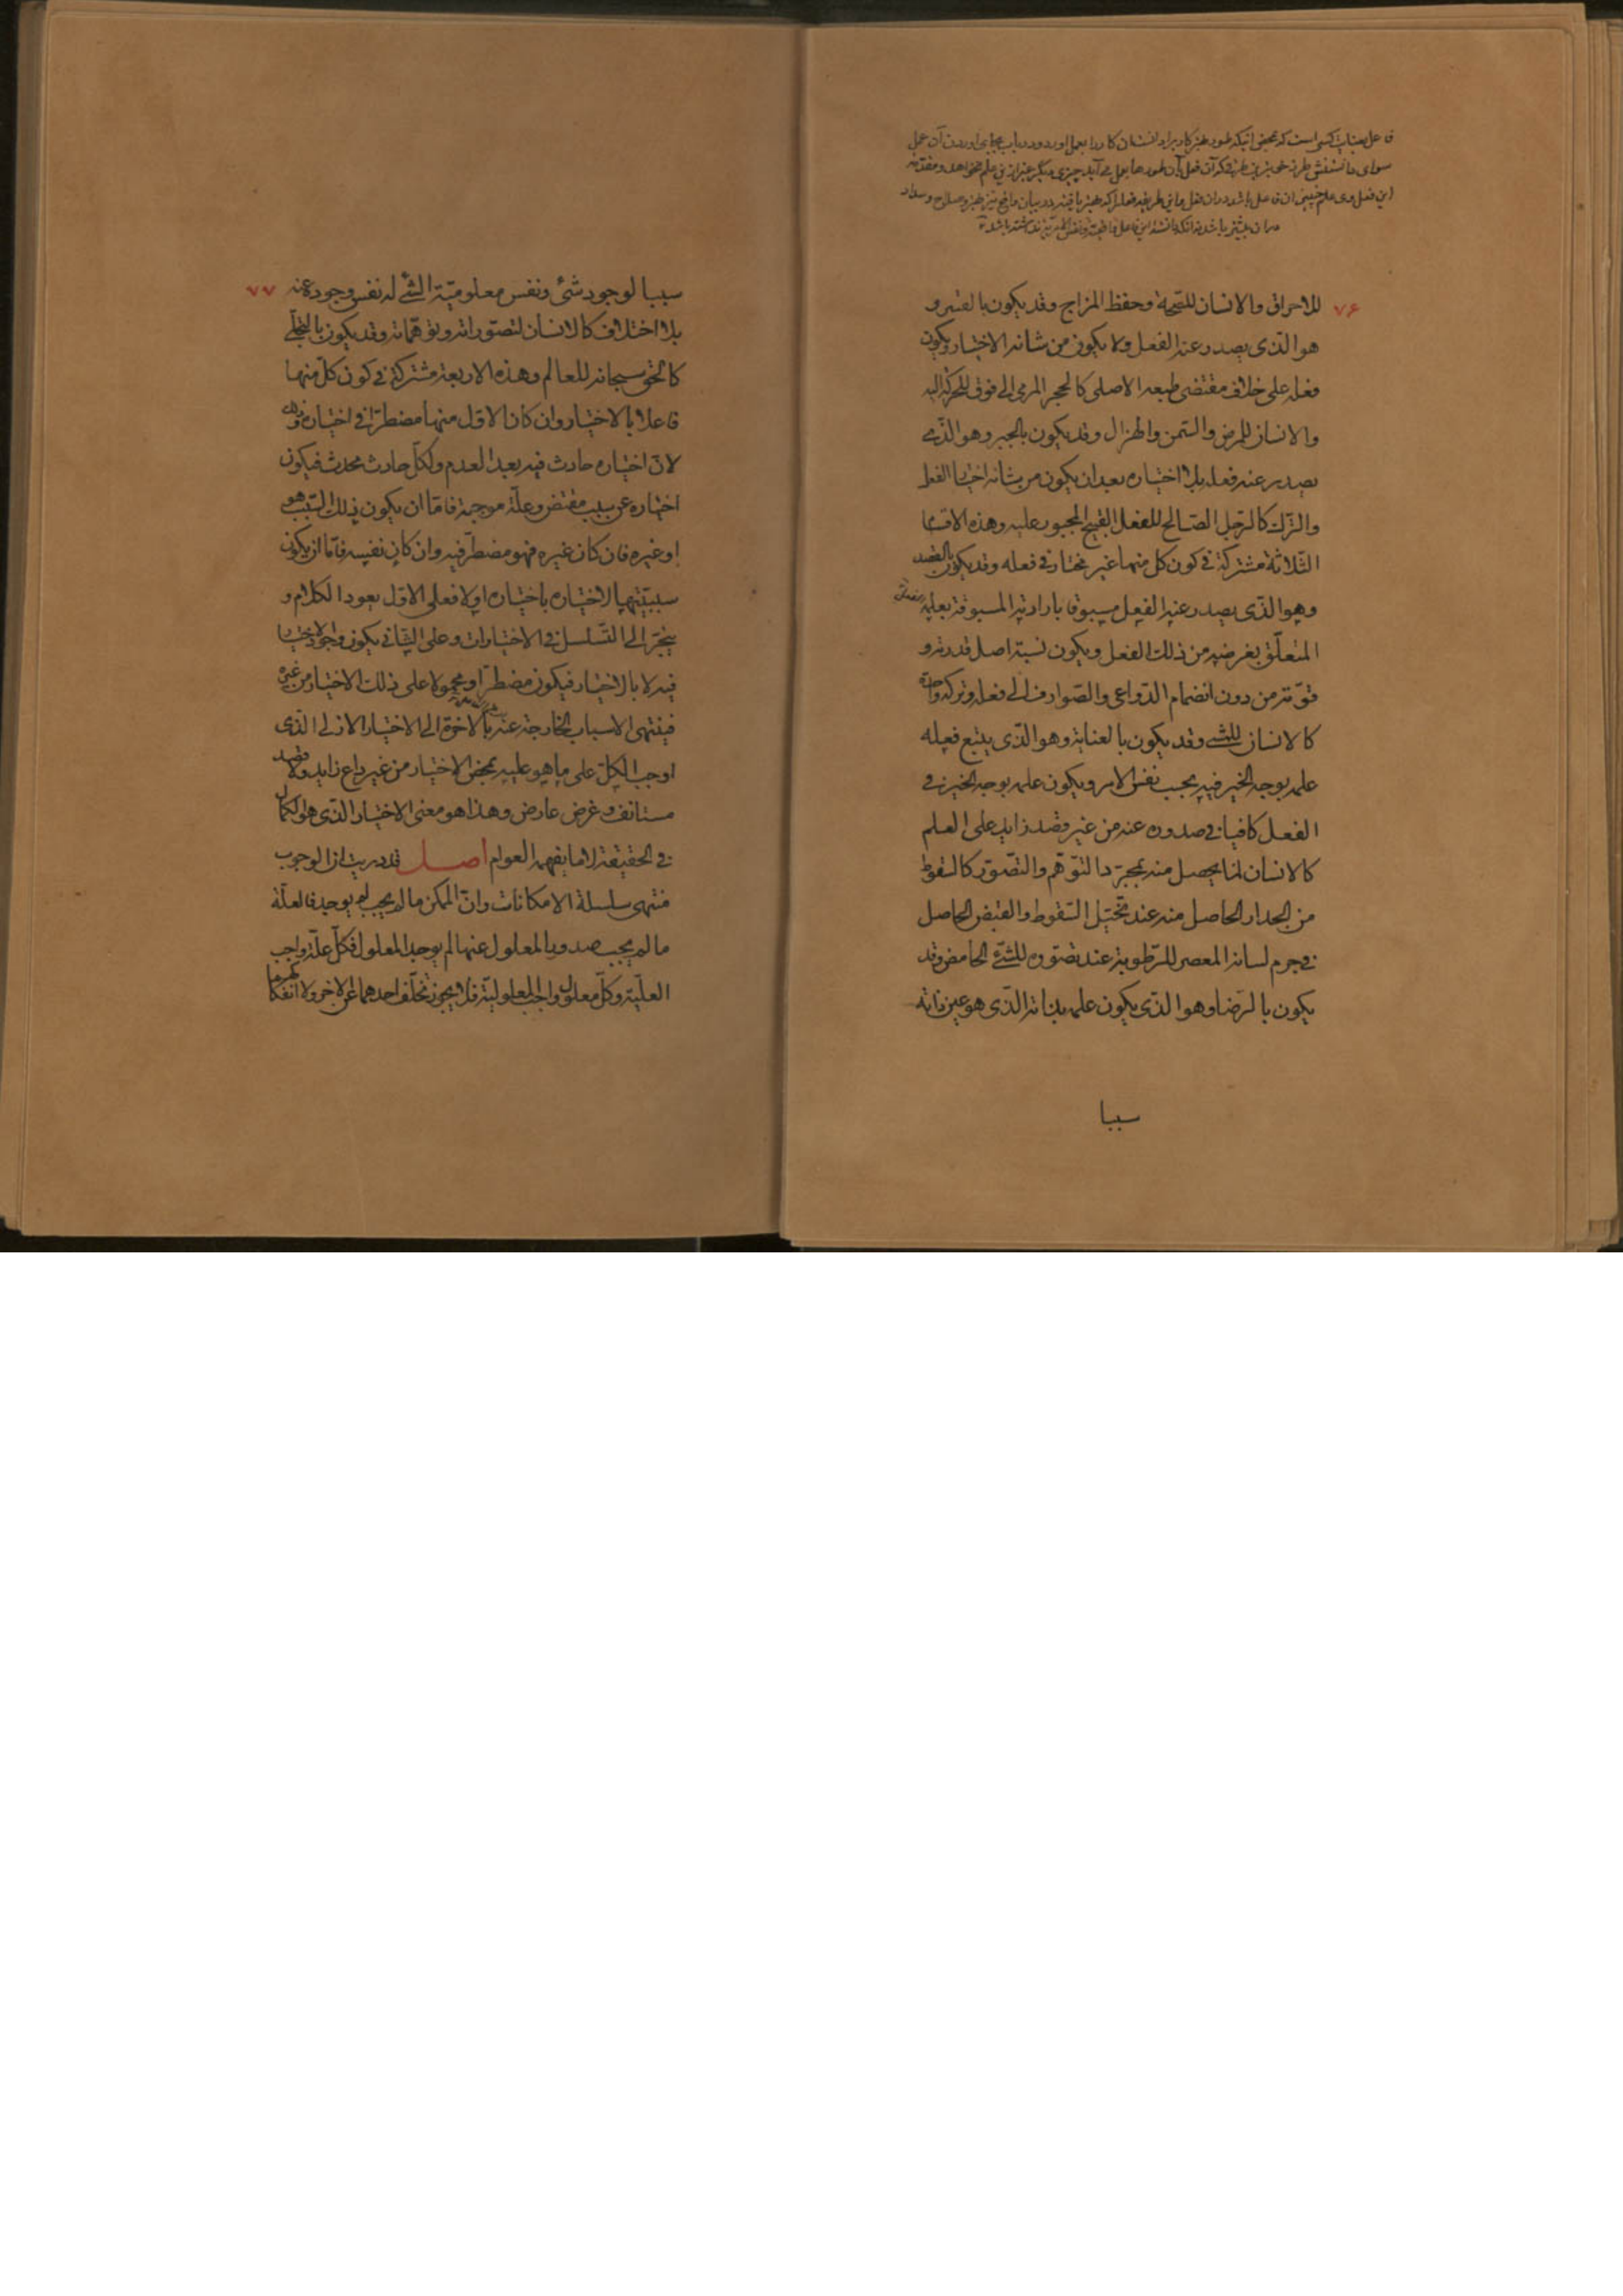 فاعل بعنایت کسی است که محض اینکه طور خیر کار برو او نشان کار را بعمل آورد و در باب بجای آوردن آن عمل
سوای دانستنش طرز خیر بودن طرفی که آن فعل بآن طور ها بعمل می آید چیزی دیگر غیر از این علم نخواهد و مقدمه
این فعل وی علم چنین آن فاعل باشد در آن فعل و این طریقه فعل را که خیر یافته در بیان واقع نیز خیر و صلاح و سداد
در آن بیشتر باشد
۷۶
للاحراق والانسان للصحة وحفظ المزاج وقد يكون بالقسر و
هو الذى يصدر عنه الفعل ولا يكون من شانه الاختيار ويكون
فعله على خلاف مقتضى طبعه الاصلى كالحجر المرمى الى فوق للحركة اليه
والانسان للمرض والسمن والهزال وقد يكون بالجبر وهو الذى
يصدر عنه فعله بلا اختياره بعد ان يكون من شانه اختيار الفعل
والترك كالرجل الصالح للفعل القبيح المجبور عليه وهذه الاقسام
الثلاثة مشتركة فى كون كل منها غير مختار فى فعله وقد يكون بالقصد
وهو الذى يصدر عنه الفعل مسبوقا بارادته المسبوقة بعلمه
المتعلق بغرضه من ذلك الفعل ويكون نسبة اصل قدرته و
قوته من دون انضمام الدواعى والصوارف الى فعله وتركه واحدة
كالانسان للمشى وقد يكون بالعناية وهو الذى يتبع فعله
علمه بوجه الخير فيه بحسب نفس الامر ويكون علمه بوجه الخير فى
الفعل كافيا فى صدوره عنه من غير قصد زايد على العلم
كالانسان لما يحصل منه بمجرد التوهم والتصور كالسقوط
من الجدار الحاصل منه عند تخيل السقوط والقبض الحاصل
فى جرم لسانه المعصر للرطوبة عند تصوره للشئ الحامض وقد
يكون بالرضا وهو الذى يكون علمه بذاته الذى هو عين ذاته
سببا
۷۷
سببا لوجود شئ ونفس معلومية الشئ له نفس وجوده عنه
بلا اختلاف كالانسان لتصوراته وتوهماته وقد يكون بالتجلى
كالحق سبحانه للعالم وهذه الاربعة مشتركة فى كون كل منها
فاعلا بالاختيار وان كان الاول منها مضطرا فى اختياره وذلك
لان اختياره حادث فيه بعد العدم ولكل حادث محدث فيكون
اختياره عن سبب مقتض وعلة موجبة فاما ان يكون ذلك السبب هو
او غيره فان كان غيره فهو مضطر فيه وان كان نفسه فاما ان يكون
سببيتها لاختياره باختياره اولا فعلى الاول يعود الكلام و
ينجر الى التسلسل فى الاختيارات وعلى الثانى يكون وجود الاختيار
فيه لا بالاختيار فيكون مضطرا ومحمولا على ذلك الاختيار من غيره
فينتهى الاسباب الخارجة عنه بالاخرة الى الاختيار الازلى الذى
اوجب الكل على ما هو عليه بمحض الاختيار من غير داع زايد ولا قصد
مستانف وغرض عارض وهذا هو معنى الاختيار الذى هو الكمال
فى الحقيقة لا ما يفهمه العوام اصل قد دريت ان الوجوب
منتهى سلسلة الامكانات وان الممكن ما لم يجب لم يوجد فالعلة
ما لم يجب صدور المعلول عنها لم يوجد المعلول فكل علة واجب
العلية وكل معلول واجب المعلولية فلا يجوز تخلف احدهما عن الاخر ولا انفكاكهما